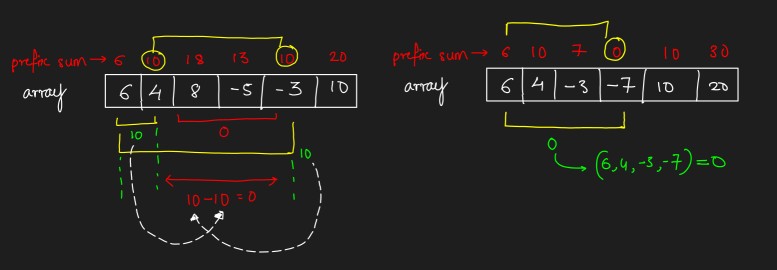 prefix sum → 6 10 18 13 10 20
array 6 4 8 -5 -3 10
10 0
10
10-10=0
prefix sum → 6 10 7 0 10 30
array 6 4 -3 -7 10 20
0
(6,4,-3,-7)=0